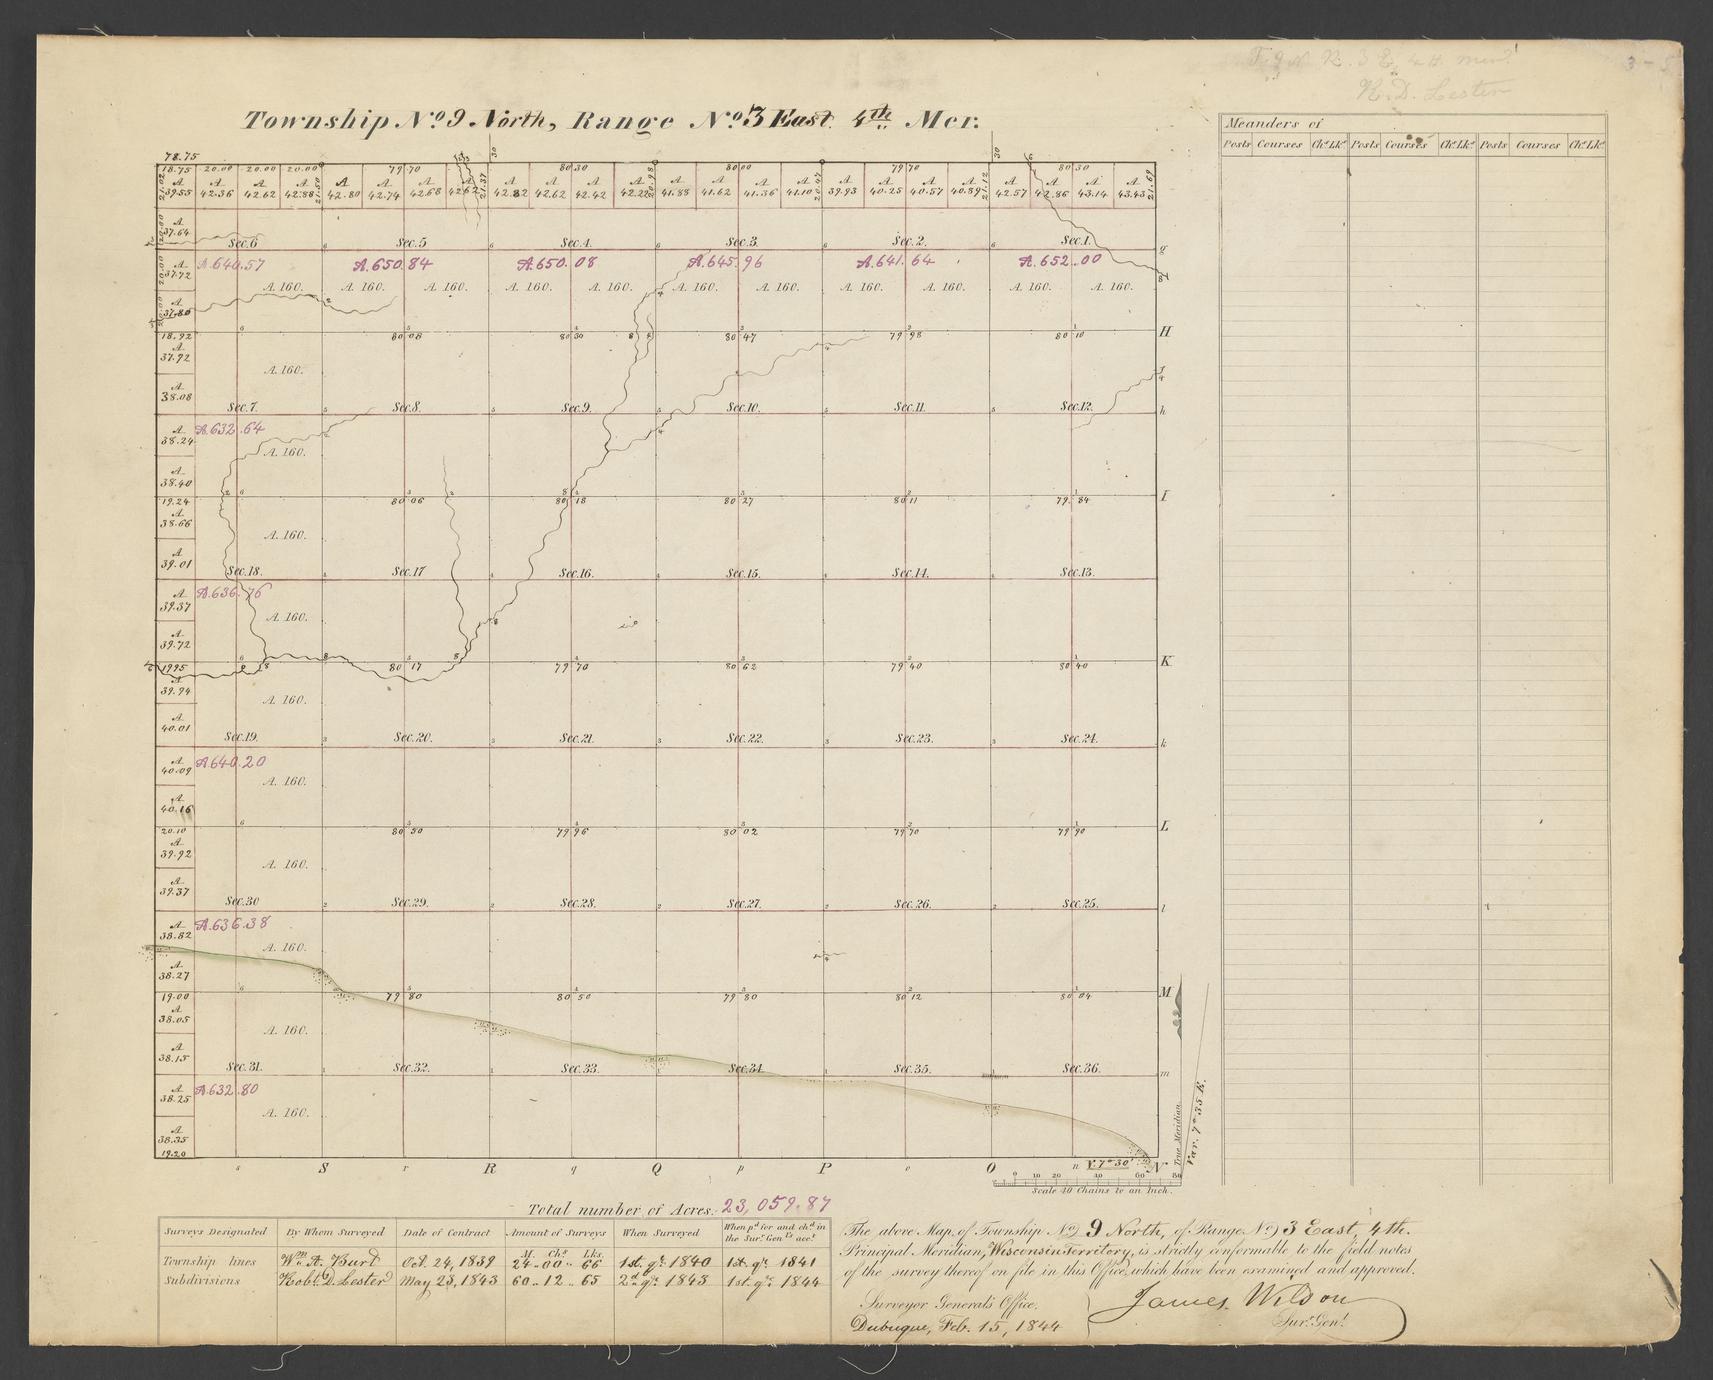 T. 9 N. R. 3 E, 4th mer.
R. D. Lester
3 - 5
Township No. 9 North, Range No. 3 East 4th Mer.
Meanders of
Posts Courses Ch. Lk. Posts Courses Ch. Lk. Posts Courses Ch. Lk.
78.75 30 30
18.75 20.00 20.00 20.00 79 70 80 30 80 00 79 70 80 30
A A A A A A A A A A A A A A A A A A A A A A A
39.55 42.36 42.62 42.88 42.80 42.74 42.68 42.82 42.62 42.42 42.22 41.88 41.62 41.36 41.10 39.93 40.25 40.57 40.89 42.57 42.86 43.14 43.43
21.02 21.50 21.37 20.98 20.47 21.12 21.69
A 37.64
Sec. 6 Sec. 5 Sec. 4. Sec. 3. Sec. 2. Sec. 1. g
A 37.72
A. 640.57 A. 650.84 A. 650.08 A. 645.96 A. 641.64 A. 652.00
A. 160. A. 160. A. 160. A. 160. A. 160. A. 160. A. 160. A. 160. A. 160. A. 160. A. 160.
A 37.80
18.92 80 08 80 30 80 47 79 98 80 10 H
A 37.92
A. 160.
A 38.08
Sec. 7. Sec. 8. Sec. 9. Sec. 10. Sec. 11. Sec. 12. h
A 38.24
A. 632.64
A. 160.
A 38.40
19.24 80 06 80 18 80 27 80 11 79 84 I
A 38.66
A. 160.
A 39.01
Sec. 18. Sec. 17 Sec. 16. Sec. 15. Sec. 14. Sec. 13.
A 39.37
A. 636.76
A. 160.
A 39.72
19.95 80 17 79 70 80 62 79 40 80 40 K
A 39.94
A. 160.
A 40.01
Sec. 19. Sec. 20. Sec. 21. Sec. 22. Sec. 23. Sec. 24. k
A 40.09
A. 640.20
A. 160.
A 40.16
20.10 80 50 79 96 80 02 79 70 79 90 L
A 39.92
A. 160.
A 39.37
Sec. 30 Sec. 29. Sec. 28. Sec. 27. Sec. 26. Sec. 25. l
A 38.82
A. 636.38
A. 160.
A 38.27
19.00 79 80 80 50 79 80 80 12 80 04 M
A 38.05
A. 160.
A 38.15
Sec. 31. Sec. 32. Sec. 33. Sec. 34. Sec. 35. Sec. 36. m
A 38.25
A. 632.80
A. 160.
A 38.35
19.20
s S r R q Q p P o O n V. 7° 30' N
True Meridian
Var. 7° 35 E.
0 10 20 40 60 80
Scale 40 Chains to an Inch.
Total number of Acres. 23,059.87
Surveys Designated By Whom Surveyed Date of Contract Amount of Surveys When Surveyed When pd for and chd in the Sur. Genls acct
M. Chs. Lks.
Township lines Wm. A. Burt Oct. 24, 1839 24 .. 00 .. 66 1st. qr. 1840 1st. qr. 1841
Subdivisions Robt. D. Lester May 23, 1843 60 .. 12 .. 65 2d. qr. 1843 1st. qr. 1844
The above Map, of Township No. 9 North, of Range No. 3 East, 4th.
Principal Meridian, Wisconsin Territory, is strictly conformable to the field notes
of the survey thereof on file in this Office, which have been examined and approved.
Surveyor General's Office,
Dubuque, Feb. 15, 1844
James Wilson
Sur. Genl.